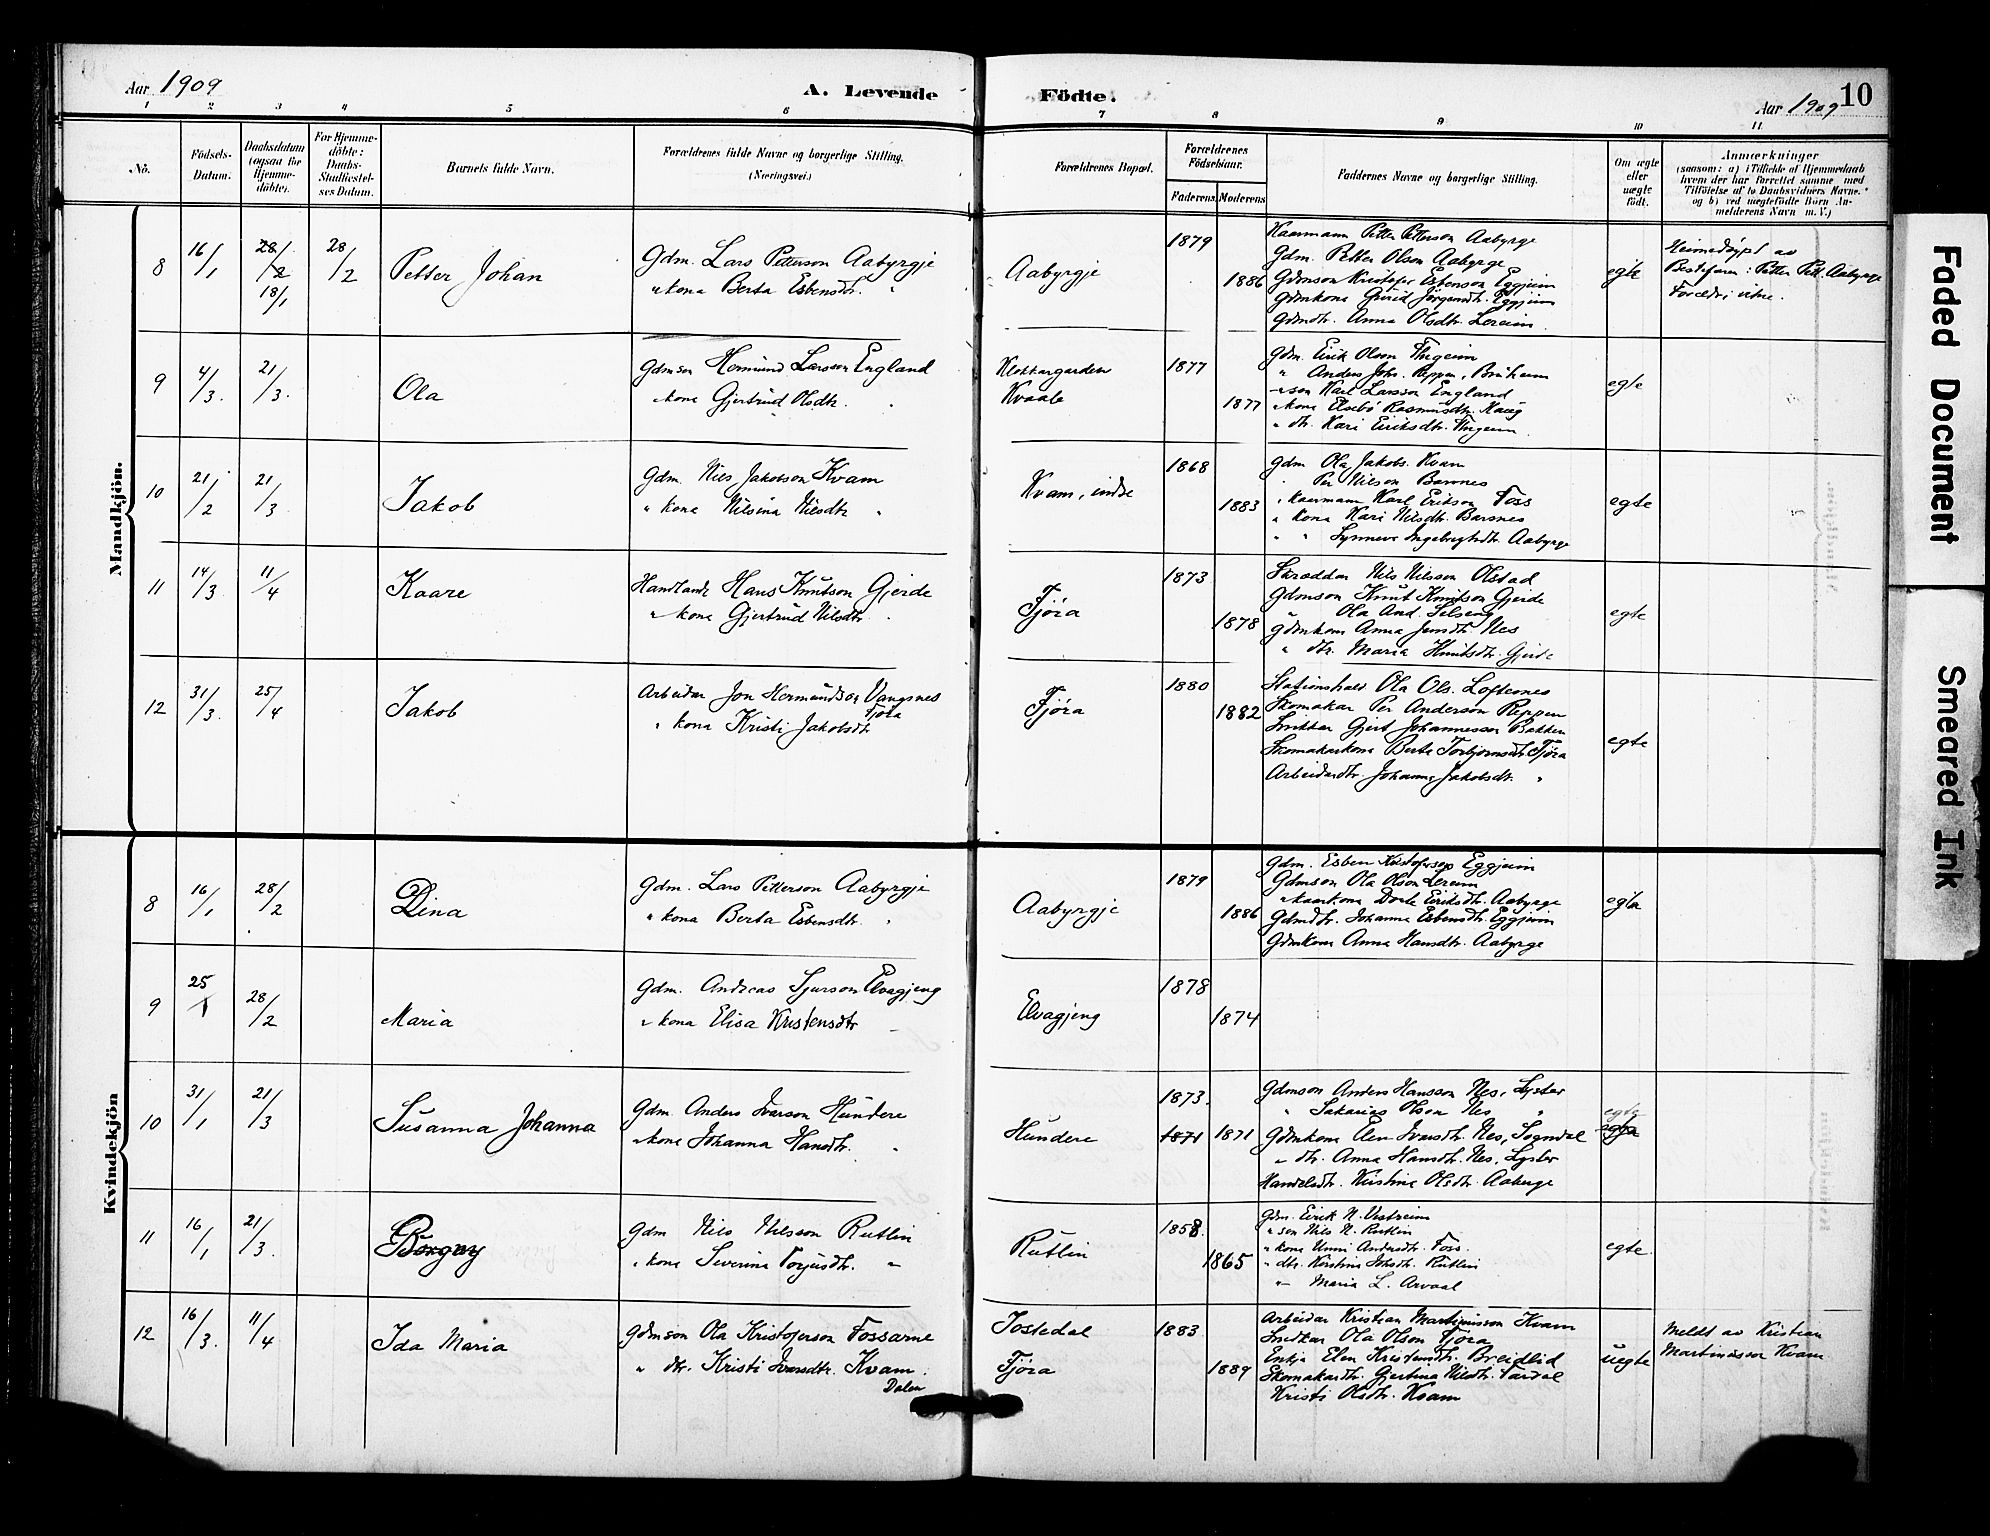 Aar 1909
A. Levende
Födte.
Aar 1909
10
1 2 3 4 5 6 7 8 9 10 11
No.
Födsels-
Datum.
Daabsdatum
(ogsaa for
Hjemme-
döbte).
For Hjemme-
döbte:
Daabs-
Stadfæstel-
ses Datum.
Barnets fulde Navn.
Forældrenes fulde Navne og borgerlige Stilling.
(Næringsvei.)
Forældrenes Bopæl.
Forældrenes
Födselsaar.
Faderens.
Moderens
Faddernes Navne og borgerlige Stilling.
Om ægte
eller
uægte
födt.
Anmærkninger
(saasom: a) i Tilfælde af Hjemmedaab
hvem der har forrettet samme med
Tilföielse af to Daabsvidners Navne.
og b) ved uægtefödte Börn An-
melderens Navn m. V.)
Mandkjön.
8
16/1
28/2
18/1
28/2
Petter Johan
Gdm. Lars Petterson Aabyrgje
" kona Berta Esbensdtr. "
Aabyrgje
1879
1886
Kaarmann Petter Petterson Aabyrge
Gdm. Petter Olson Aabyrge
Gdmson Kristofer Esbenson Eggjeim
Gdmkona Gurid Jørgensdtr. Eggjeim
Gdmdtr. Anna Olsdtr. Lereim
egte
Heimedøypt av
Bestefaren: Petter Pett. Aabyrge
Foreldri vitne.
9
4/3.
21/3.
Ola
Gdmson Hermund Larsson England
" kona Gjertrud Olsdtr. "
Klokkargarden
Kvaale
1877
1877
Gdm. Eirik Olson
" Anders Johs. Reppen,
" son Karl Larsson England
" kona Elsebø Rasmusdtr. Haug
" dtr. Kari Eiriksdtr.
egte
10
21/2
21/3
Jakob
Gdm. Nils Jakobson Kvam
" kona Nilsina Nilsdtr "
Kvam, indre
1868
1883
Gdm Ola Jakobs. Kvam
Per Nilson Barsnes
" Kaarmann Karl Erikson Foss
" kona Kari Nilsdtr. Barsnes
" " Synneva Ingebrigtsdtr. Aabyrge
egte
11
14/3.
11/4
Kaare
Handlande Hans Knutson Gjerde
" kona Gjertrud Nilsdtr. "
Fjöra
1873
1878
Skreddar Nils Nilsson Olstad
Gdmson Knut Knutson Gjerde
" Ola And. Selseng
Gdmkona Anna Jensdtr. Nes
" dtr. Maria Knutsdtr. Gjerde
egte
12
31/3.
25/4
Jakob
Arbeidar Jon Hermundson Vangsnes
Fjöra
" kona Kristi Jakobsdtr
Fjöra
1880
1882
Stationshald. Ola Ols. Loftesnes
Skomakar Per Anderson Reppen
Snikkar Gjert Johannesson Bakken
Skomakarkona Berta Torbjørnsdtr. Fjöra
Arbeidardtr. Johanna Jakobsdtr. "
egte
Kvindekjön
8
16/1
28/2
Dina
Gdm. Lars Petterson Aabyrgje
" kona Berta Esbensdtr. "
Aabyrgje
1879
1886
Gdm. Esben Kristoferson Eggjeim
Gdmson Ola Olson Lereim
" kaarkona Dorte Eiriksdtr. Aabyrge
Gdmdtr. Johanna Esbensdtr. Eggjeim
Gdmkona Anna Hansdtr. Aabyrge
egte
9
25/1
28/2
Maria
Gdm. Andreas Sjurson Elvagjeng
" kona Elisa Kristensdtr "
Elvagjeng
1878
1874
10
31/1
21/3
Susanna Johanna
Gdm. Anders Ivarson Hundere
" kona Johanna Hansdtr. "
Hundere
1873.
1871
1871
Gdmson Anders Hansson Nes, Lyster
" Sakarias Olson Nes "
Gdmkona Elen Ivarsdtr. Nes, Sogndal
" dtr. Anna Hansdtr. Nes, Lyster
Handelsdtr. Kristina Olsdtr. Aaberge
egte
11
16/1
21/3.
Borgny
Gdm Nils Nilsson Rutlin
" kona Severina Torjusdtr. "
Rutlin
1858.
1865
Gdm. Eirik N. Vestreim
" son Nils N. Rutlin
" kona Unni Andersdtr. Foss.
" dtr. Kristina Johsdtr. Rutlin
" Maria L. Arvaal
egte.
12
16/3.
11/4
Ida Maria
Gdmson Ola Kristoferson Fossarne
" dtr. Kristi Ivarsdtr. Kvam
Dalen
Jostedal
Fjöra
1883
1889
Arbeidar Kristian Martinusson Kvam
Snikkar Ola Olson Fjöra
Enkja Elen Kristensdtr. Breidlid
Skomakardtr. Gjertina Nilsdtr. Fardal
Kristi Olsdtr. Kvam
uegte
Meldt av Kristian
Martinusson Kvam
Faded Document
Smeared Ink